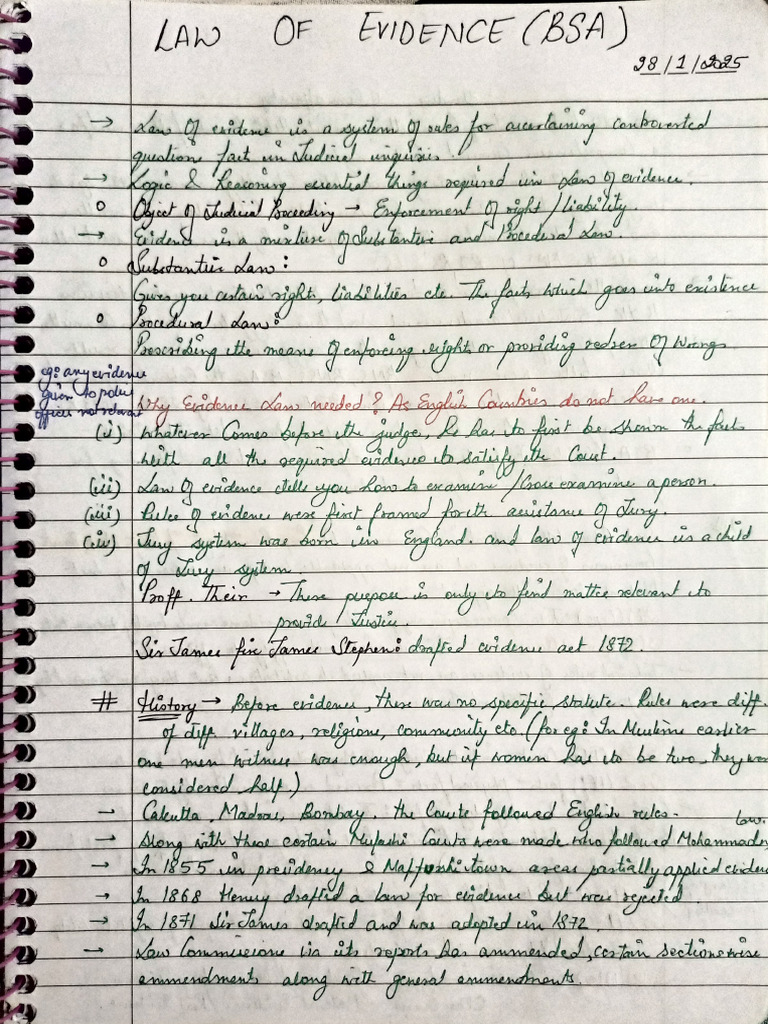 LAW OF EVIDENCE (BSA)
28/1/2025
→ Law Of evidence is a system of rules for ascertaining controverted
question fact in Judicial inquiries.
→ Logic & Reasoning essential things required in Law of evidence.
o Object of Judicial Proceeding → Enforcement Of right/liability.
→ Evidence is a mixture of Substantive and Procedural Law.
o Substantive Law:
Gives you certain rights, liabilities etc. The facts which goes into existence
o Procedural Law:
Prescribing the means of enforcing rights or providing redser Of Wrongs
eg: any evidence
given to police
officer not relevant
Why Evidence Law needed? As English Countries do not have one.
(i) Whatever Comes before the judge, he has to first be shown the facts
with all the required evidence to satisfy the Court.
(ii) Law Of evidence tells you how to examine/Cross examine a person.
(iii) Rules of evidence were first framed for the assistance of Jury.
(iv) Jury system was born in England. and law of evidence is a child
of Jury system.
Proff. Their → There purpose is only to find matter relevant to
provide Justice.
Sir James fire James Stephen: drafted evidence act 1872.
# History → Before evidence, there was no specific statute. Rules were diff.
of diff. villages, religions, community etc. (for eg: In Muslims earlier
one men witness was enough, but if women has to be two, they were
considered half.)
– Calcutta, Madras, Bombay. the Courts followed English rules.
→ Along with these certain Mufashi Courts were made who followed Mohammaden
law.
→ In 1855 in presidency & town areas partially applied
→ In 1868 Henry drafted a law for evidence but was rejected.
→ In 1871 Sir James drafted and was adopted in 1872.
→ Law Commissions in its reports has ammended, certain sectionwise
ammendments along with general ammendments.